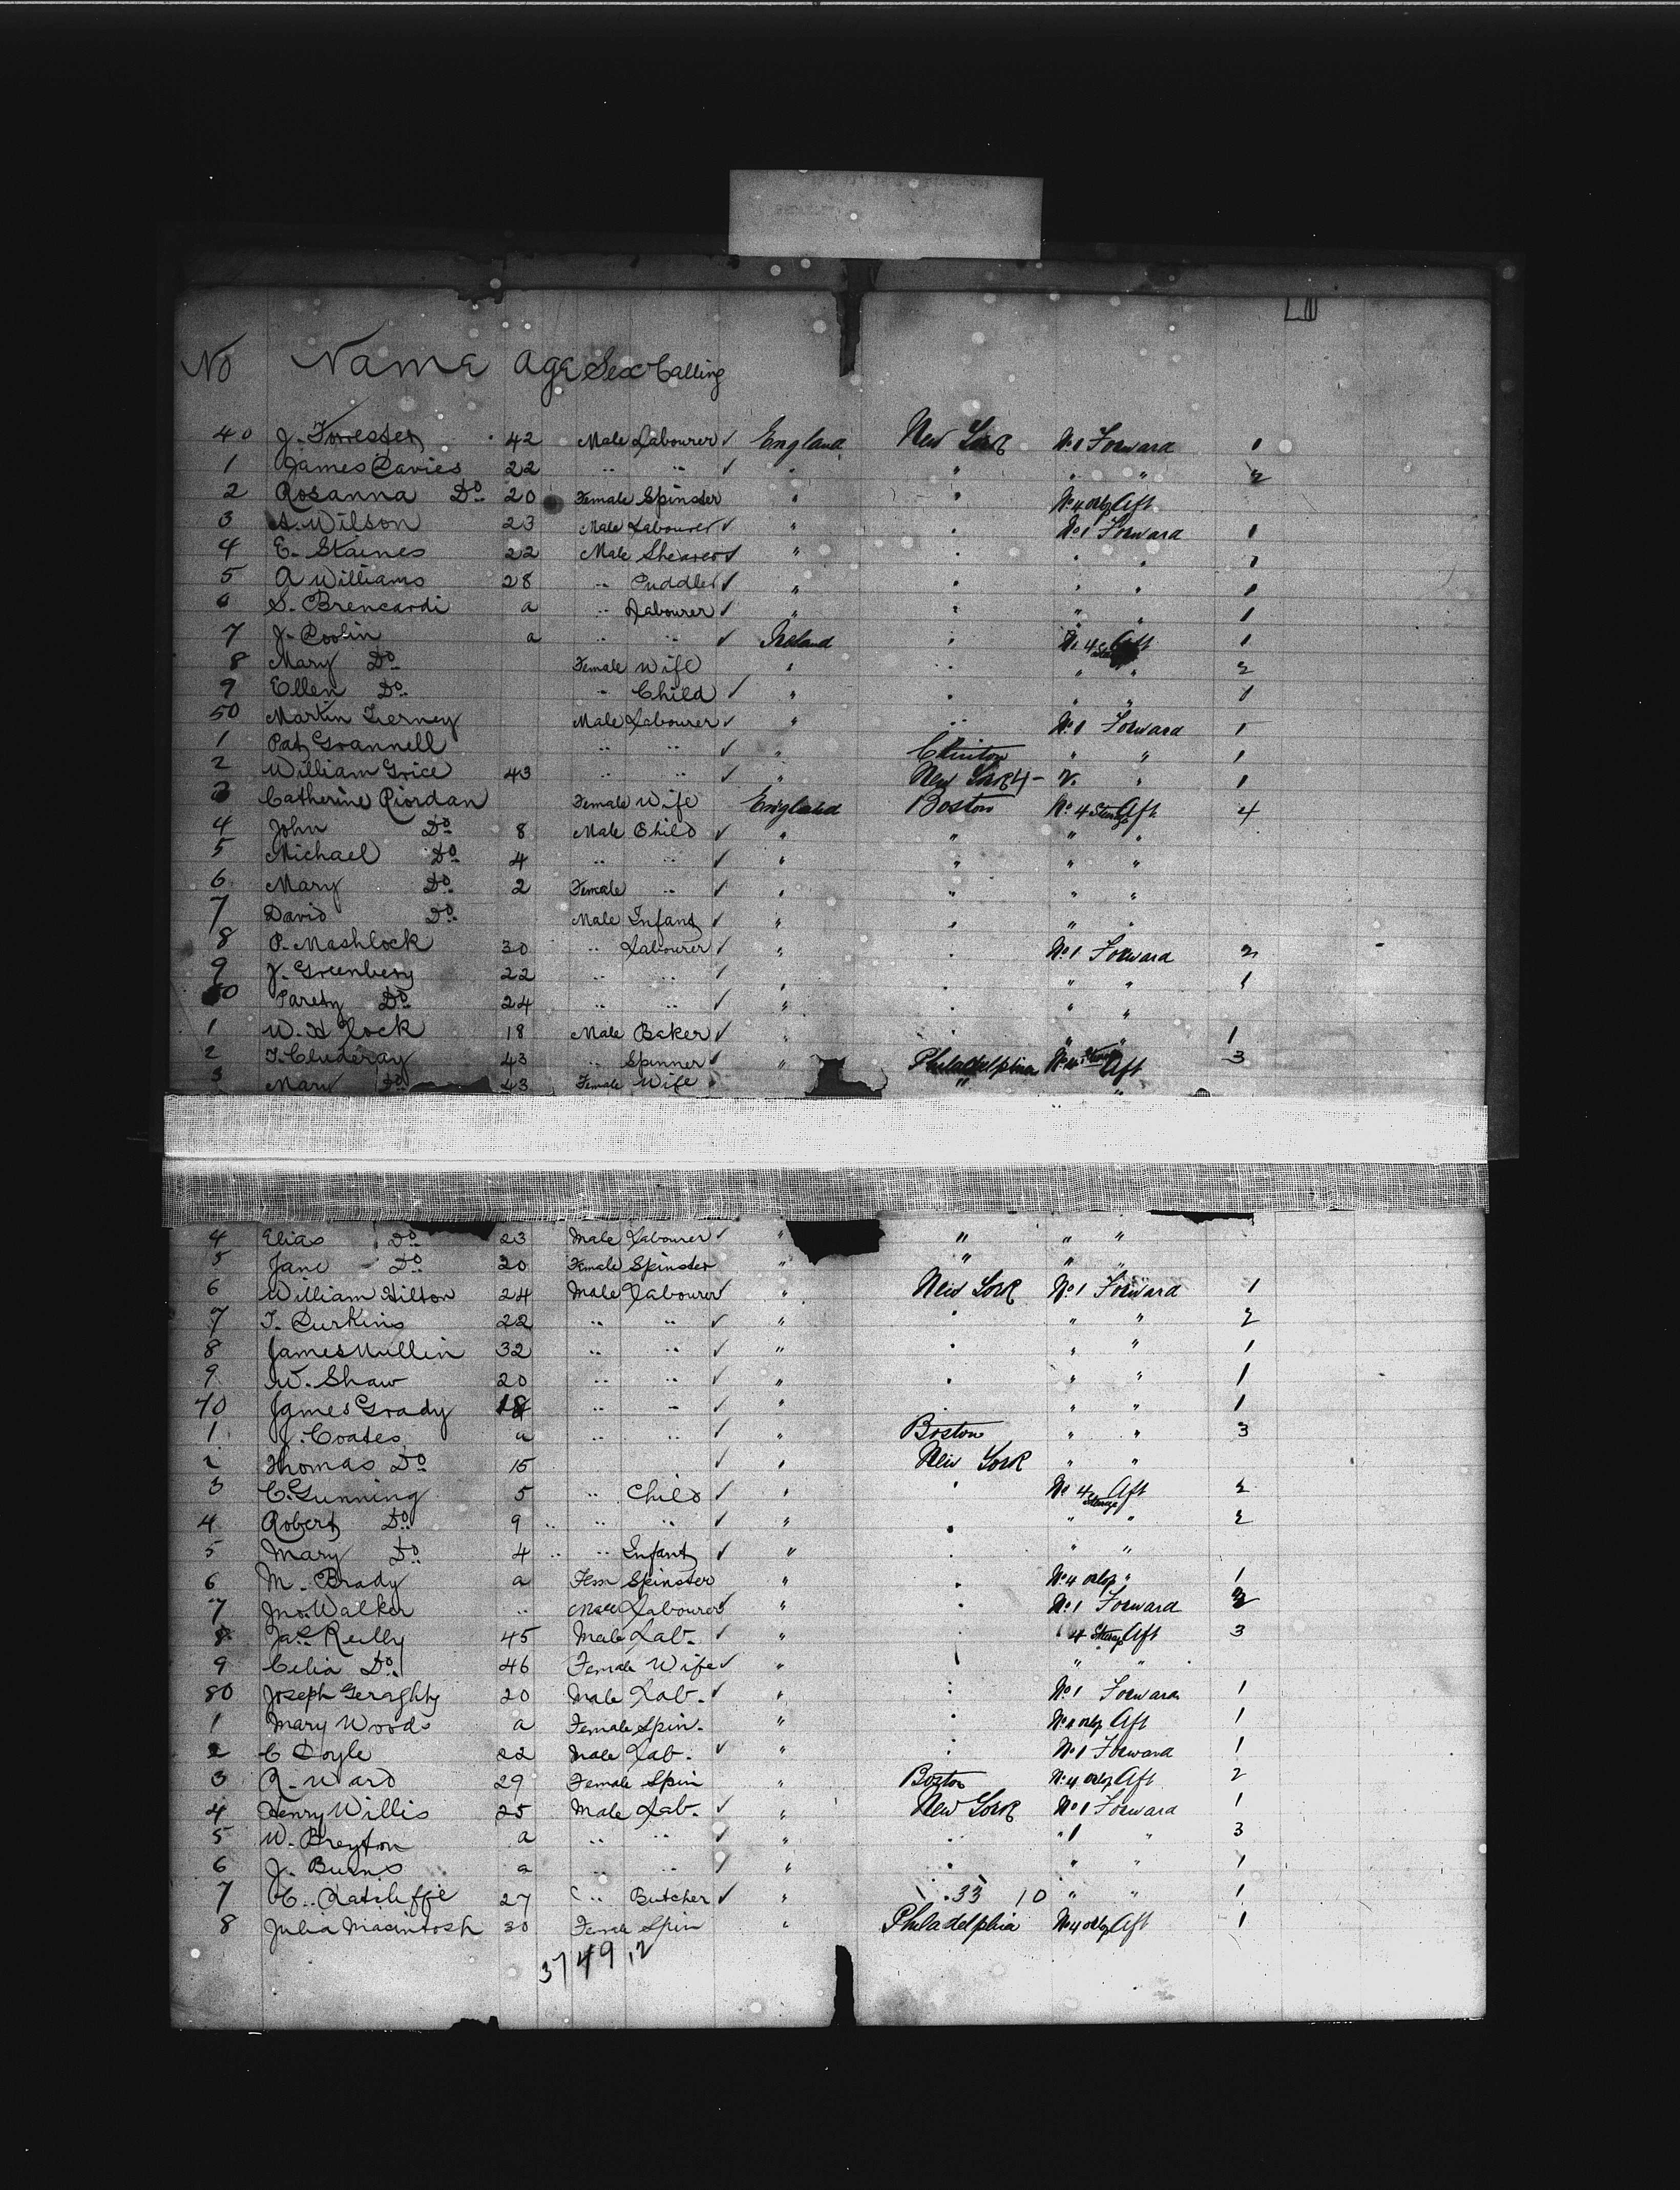 No Name Age Sex Calling
40 J. Forrester 42 Male Labourer ✓ England New York No 1 Forward 1
1 James Davies 22 " " ✓ " " " " 2
2 Rosanna Do 20 Female Spinster " " No 4 Orlop Aft
3 A. Wilson 23 Male Labourer ✓ " " No 1 Forward 1
4 E. Staines 22 Male Shearer ✓ " " " " 1
5 A Williams 28 " Puddler ✓ " " " " 1
6 S. Brencardi a " Labourer ✓ " " " " 1
7 J. Coolin a " " ✓ Ireland " No 4 Aft 1
8 Mary Do Female Wife " " " " 2
9 Ellen Do " Child ✓ " " " " 1
50 Martin Tierney Male Labourer ✓ " " No 1 Forward 1
1 Pat Grannell " " ✓ " Clinton " " 1
2 William Grice 43 " " ✓ " New York 4 - " " 1
3 Catherine Riordan Female Wife England Boston No 4 Steerage Aft 4
4 John Do 8 Male Child ✓ " " " "
5 Michael Do 4 " " ✓ " " " "
6 Mary Do 2 Female " ✓ " " " "
7 David Do Male Infant ✓ " " " "
8 P. Mashlock 30 " Labourer ✓ " " No 1 Forward 2
9 J. Greenberg 22 " " ✓ " " " " 1
60 Do 24 " " ✓ " " " "
1 W. H Lock 18 Male Baker ✓ " " " " 1
2 T. Cluderay 43 " Spinner ✓ " Philadelphia No 4 Steerage Aft 3
3 Mary Do 43 Female Wife " "
4 Elias Do 23 Male Labourer ✓ " " " "
5 Jane Do 20 Female Spinster " " " "
6 William Hilton 24 Male Labourer ✓ " New York No 1 Forward 1
7 T. Durkins 22 " " ✓ " " " " 2
8 James Mullin 32 " " ✓ " " " " 1
9 W. Shaw 20 " " ✓ " " " " 1
70 James Grady 18 " " ✓ " " " " 1
1 J. Coates a " " ✓ " Boston " " 3
2 Thomas Do 15 ✓ " New York " "
3 C. Gunning 5 " Child ✓ " " No 4 Steerage Aft 2
4 Robert Do 9 " " " ✓ " " " " 2
5 Mary Do 4 " " Infant ✓ " " " "
6 M. Brady a Fem Spinster " " No 4 Orlop " 1
7 Jno. Walker " Male Labourer ✓ " " No 1 Forward
8 Jas. Reilly 45 Male Lab. ✓ " " 4 Steerage Aft 3
9 Celia Do 46 Female Wife ✓ " " " "
80 Joseph Geraghty 20 Male Lab. ✓ " " No 1 Forward 1
1 Mary Woods a Female Spin. " " No 4 Orlop Aft 1
2 C Doyle 22 Male Lab. ✓ " " No 1 Forward 1
3 A. Ward 29 Female Spin " Boston No 4 Orlop Aft 2
4 Henry Willis 25 Male Lab. ✓ " New York No 1 Forward 1
5 W. Breyton a " " ✓ " " " 1 " 3
6 J. Burns a " " ✓ " " " " 1
7 H. Ratcliffe 27 " Butcher ✓ " " 33 10 " " 1
8 Julia Macintosh 30 Female Spin " Philadelphia No 4 Orlop Aft 1
37 49 12